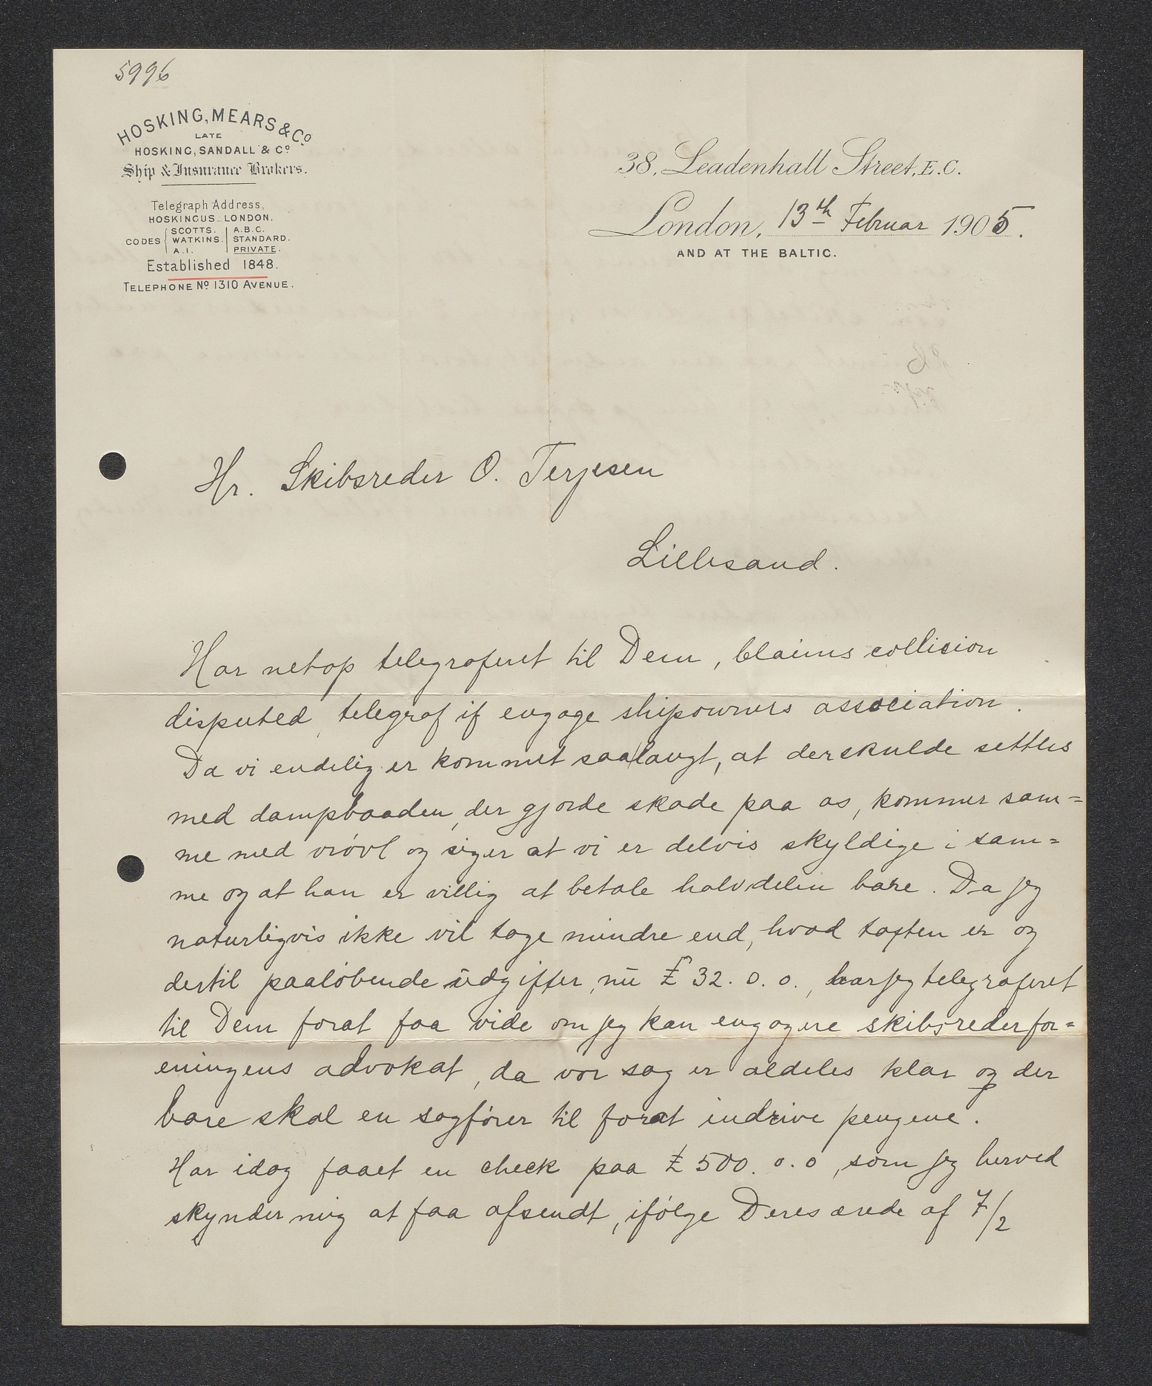 5996
HOSKING, MEARS & Co
LATE
HOSKING, SANDALL & Co
Ship & Insurance Brokers.
Telegraph Address,
HOSKINGUS_LONDON.
CODES SCOTTS. A.B.C.
WATKINS. STANDARD.
A.I. PRIVATE.
Established 1848.
TELEPHONE No 1310 AVENUE.
38, Leadenhall Street, E.C.
London, 13th Februar 1905.
AND AT THE BALTIC.
Hr. Skibsreder O. Terjesen
Lillesand.
Har netop telegraferet til Dem, blaims collision
disputed, telegraf if engage shipowners association.
Da vi endelig er kommet saalangt, at der skulde settles
med dampbaaden, der gjorde skade paa os, kommer sam=
me med vrövl og siger at vi er delvis skyldige i sam=
me og at han er villig at betale halvdelen bare. Da jeg
naturligvis ikke vil tage mindre end, hvad taxten er og
dertil paalöbende udgifter, nu £ 32. 0. 0., har jeg telegraferet
til Dem forat faa vide om jeg kan engagere skibsrederfor=
eningens advokat, da vor sag er aldeles klar og der
bare skal en sagförer til forat inddrive pengene.
Har idag faaet en check paa £ 500. 0. 0, som jeg herved
skynder mig at faa afsendt, ifölge Deres ærede af 7/2